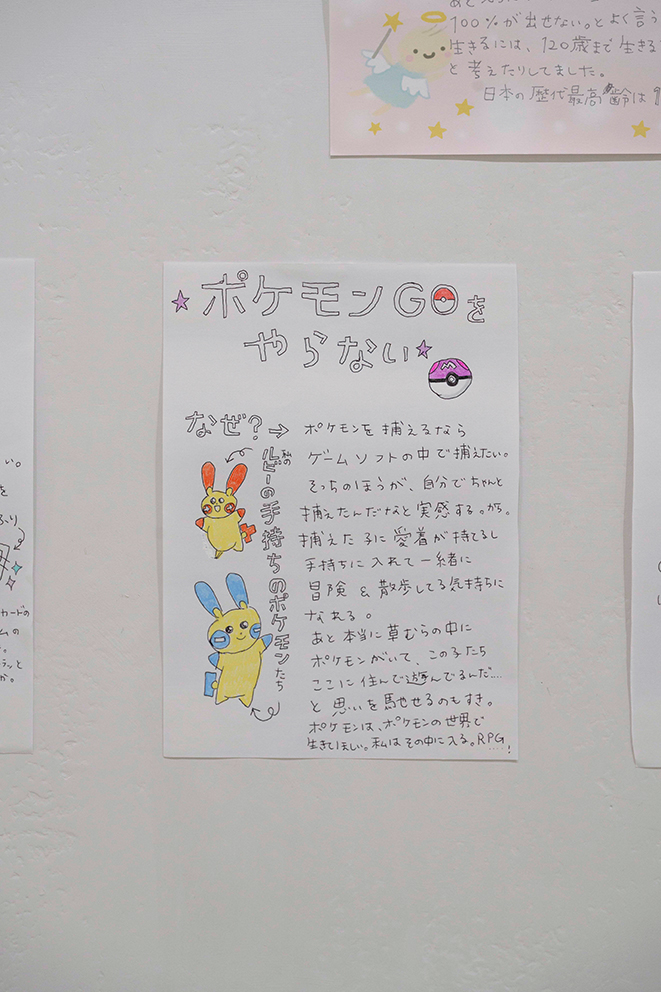 あと
100%が出せない。とよく言う
生きるには、120歳まで生きる
と考えたりしてました。
日本の歴代最高齢は
ポケモンGOを
やらない
なぜ?→
私の
ルビーの手持ちのポケモンたち
ポケモンを捕えるなら
ゲームソフトの中で捕えたい。
そっちのほうが、自分でちゃんと
捕えたんだなと実感する。から。
捕えた子に愛着が持てるし
手持ちに入れて一緒に
冒険 & 散歩してる気持ちに
なれる。
あと本当に草むらの中に
ポケモンがいて、この子たち
ここに住んで遊んでるんだ....
と思いを馳せるのもすき。
ポケモンは、ポケモンの世界で
生きてほしい。私はその中に入る。RPG....!
M
い。
を
カードの
ムの
。
か。